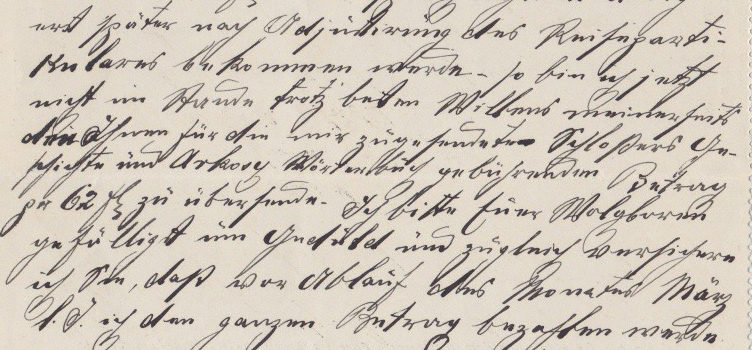 erst später nach Adjustirung des Reiseparti-
kulares bekommen werde – so bin ich jetzt
nicht im Stande trotz besten Willens meinerseits
den Ihnen für die mir zugesendeten Schloßers Ge-
schichte und Arkosy Wörterbuch gebührenden Betrag
per 62 fl zu übersende. Ich bitte Euer Wolgboren
gefälligst um Geduld und zugleich versichere
ich Sie, daß vor Ablauf des Monates März
l. J. ich den ganzen Betrag bezahlen werde.